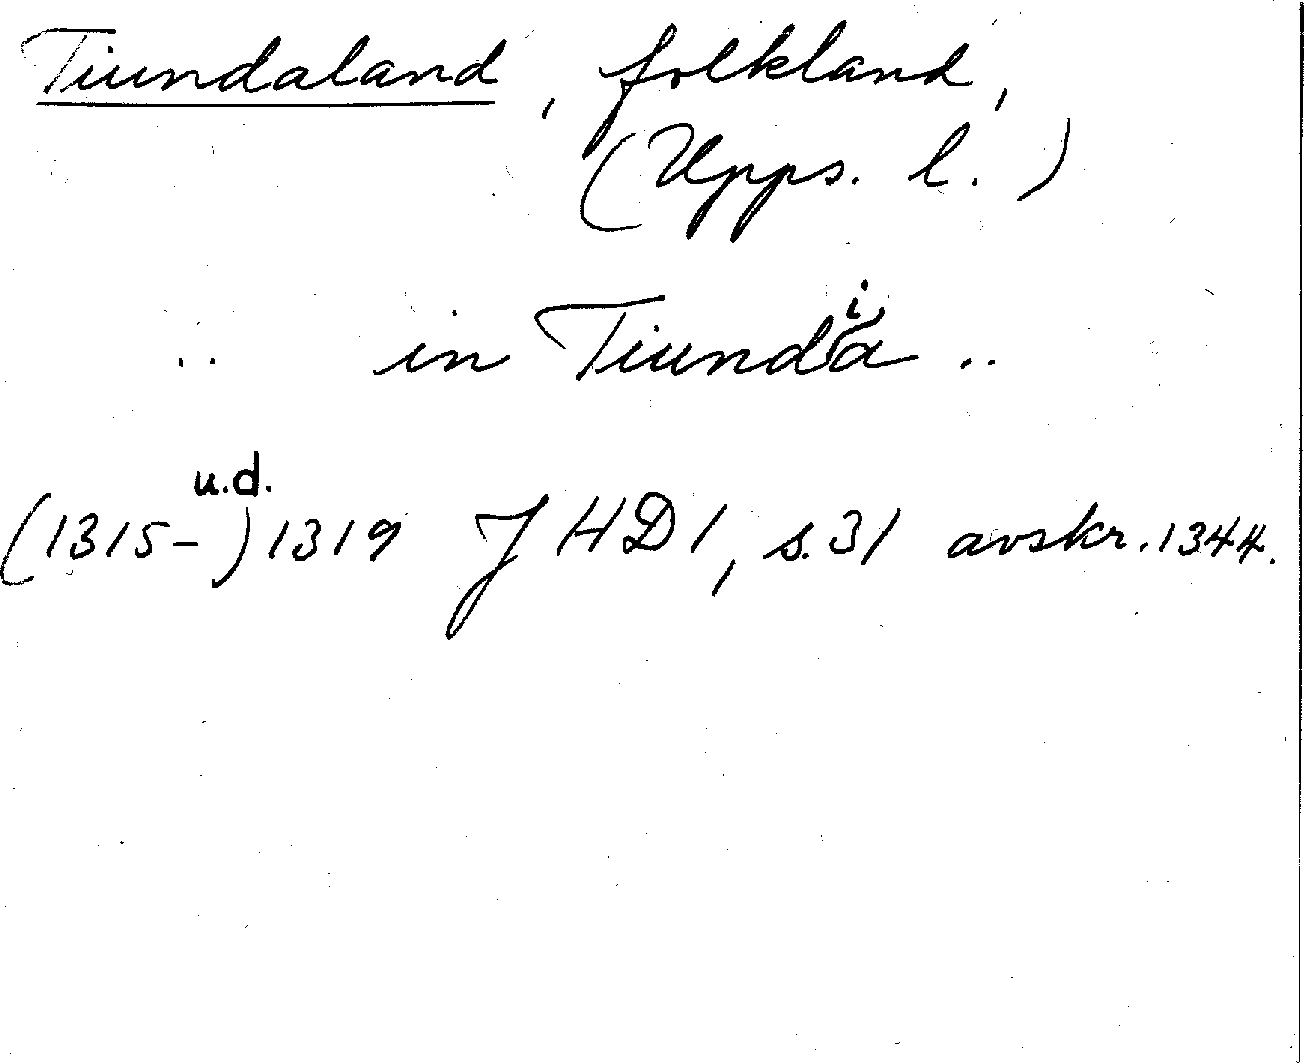 Tiundaland, folkland,
(Upps. l.)
.. in Tiundia ..
u.d.
(1315-)1319 JHD1, s.31 avskr.1344.